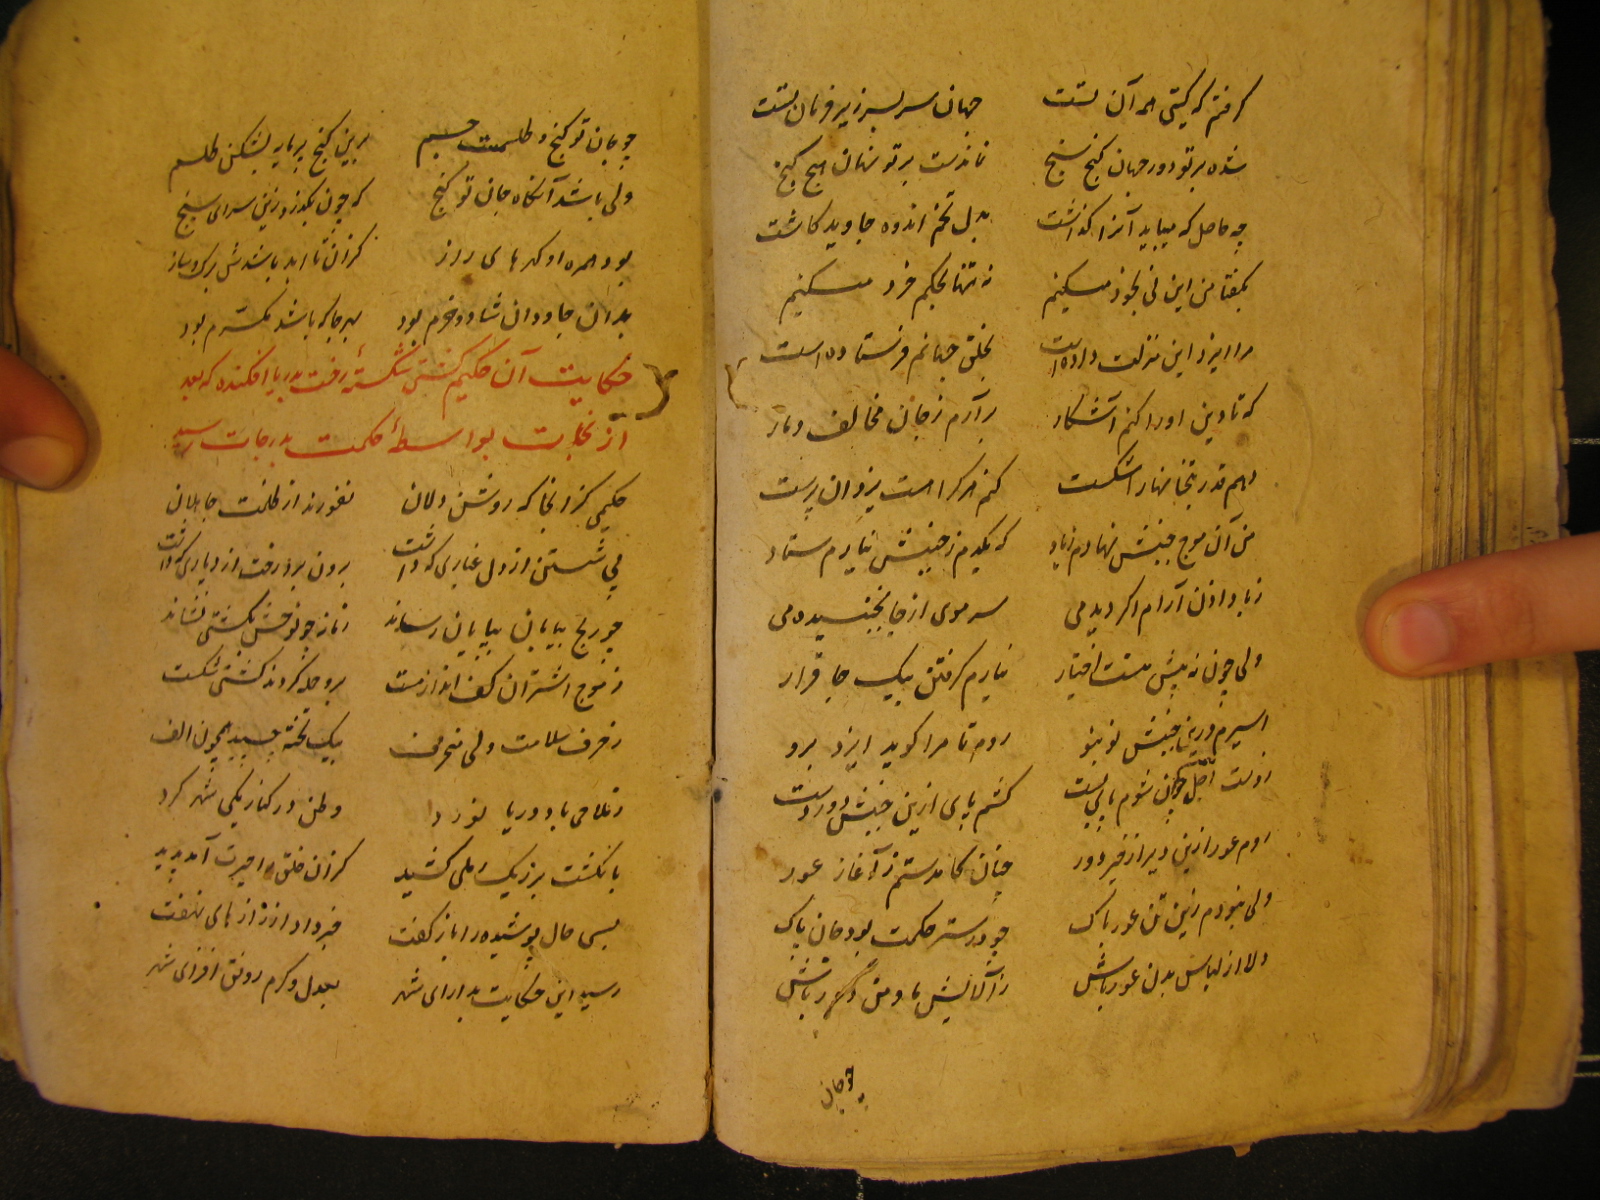 گرفتم که گیتی همه آن تست جهان سربسر زیر فرمان تست
شده بر تو دور جهان گنج سنج نماندست بر تو نهان هیچ گنج
چه حاصل که میباید آنرا گذاشت بدل تخم اندوه جاوید کاشت
بگفتا من این نی بخود میکنم نه تنها بحکم خرد میکنم
مرا ایزد این منزلت داده است بخلق جهانم فرستاده است
که تا دین او را کنم آشکار برآرم ز جان مخالف دمار
دهم قدر بتخانها را شکست کنم هر کرا هست یزدان پرست
من آن موج جنبش نهادم ز باد که یکدم ز جنبش نیارم ستاد
ز باد ار دن آرام اگر دیدمی سر موی از جا نجنبیدمی
ولی چون نه پیش منست اختیار نیارم گرفتن بیک جا قرار
اسیرم درین جنبش نو بنو روم تا مرا گوید ایزد برو
ز دست اجل چون شوم پای بست کشم پای ازین جنبش دوردست
روم عور ازین دیر از فیر دور چنان کامدستم ز آغاز عور
ولی نبودم زین تن عور باک چو در ستر حکمت بود جان پاک
دلا از لباس بدن عور باش ز آلایش ما و من دور باش
چو جان
چو جان تو گنج و طلسمت جسم ببین گنج پرمایه بشکن طلسم
ولی باشد آنگاه جان تو گنج که چون بگذرد زین سرای سپنج
بود همره او گهرهای راز کزان تا ابد باشدش برگ و ساز
بدان جاودان شاد و خرم بود بهر جا که باشد مکرم بود
حکایت آن حکیم کشتی شکستهٔ رخت بدریا افکنده که بعد
از نجات بواسطهٔ حکمت بدرجات رسید
حکیمی کز انجا که روشن دلان نفورند از ظلمت جاهلان
پی شستن از دل غباری که داشت برون برد رخت از دیاری که داشت
چو رنج بیابان بپایان رساند زمانه چو نوحش بکشتی نشاند
ز موج اشتران کف انداز مست برو حمله کردند کشتی شکست
ز حرف سلامت ولی منحرف بیک تخته چسپید همچون الف
ز ملاحی باد دریا نورد وطن در کنار یکی شهر کرد
بانگشت بر ریگ شکلی کشید کزان خلق را حیرت آمد پدید
بسی حال پوشیده را باز گفت خبر داد از رازهای نهفت
رسید این حکایت بدارای شهر بعدل و کرم رونق افزای شهر